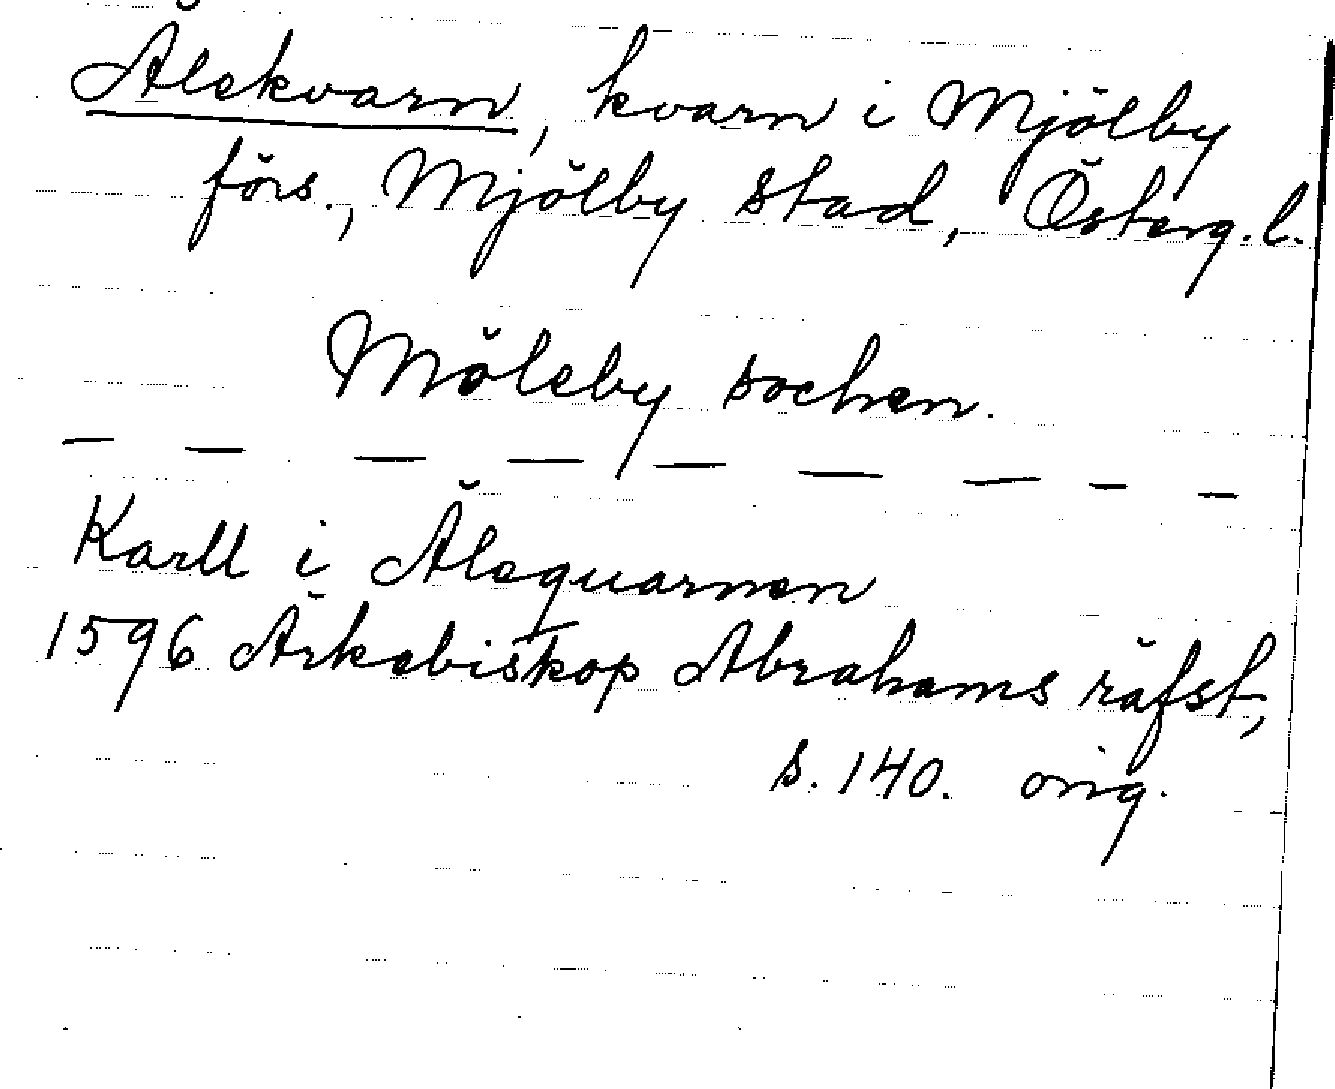 Ålekvarn, kvarn i Mjölby
förs., Mjölby stad, Österg. l.
Möleby sochen.
— — — — — — — — —
Karll i Ålequarnen
1596 Ärkebiskop Abrahams räfst,
s. 140. orig.